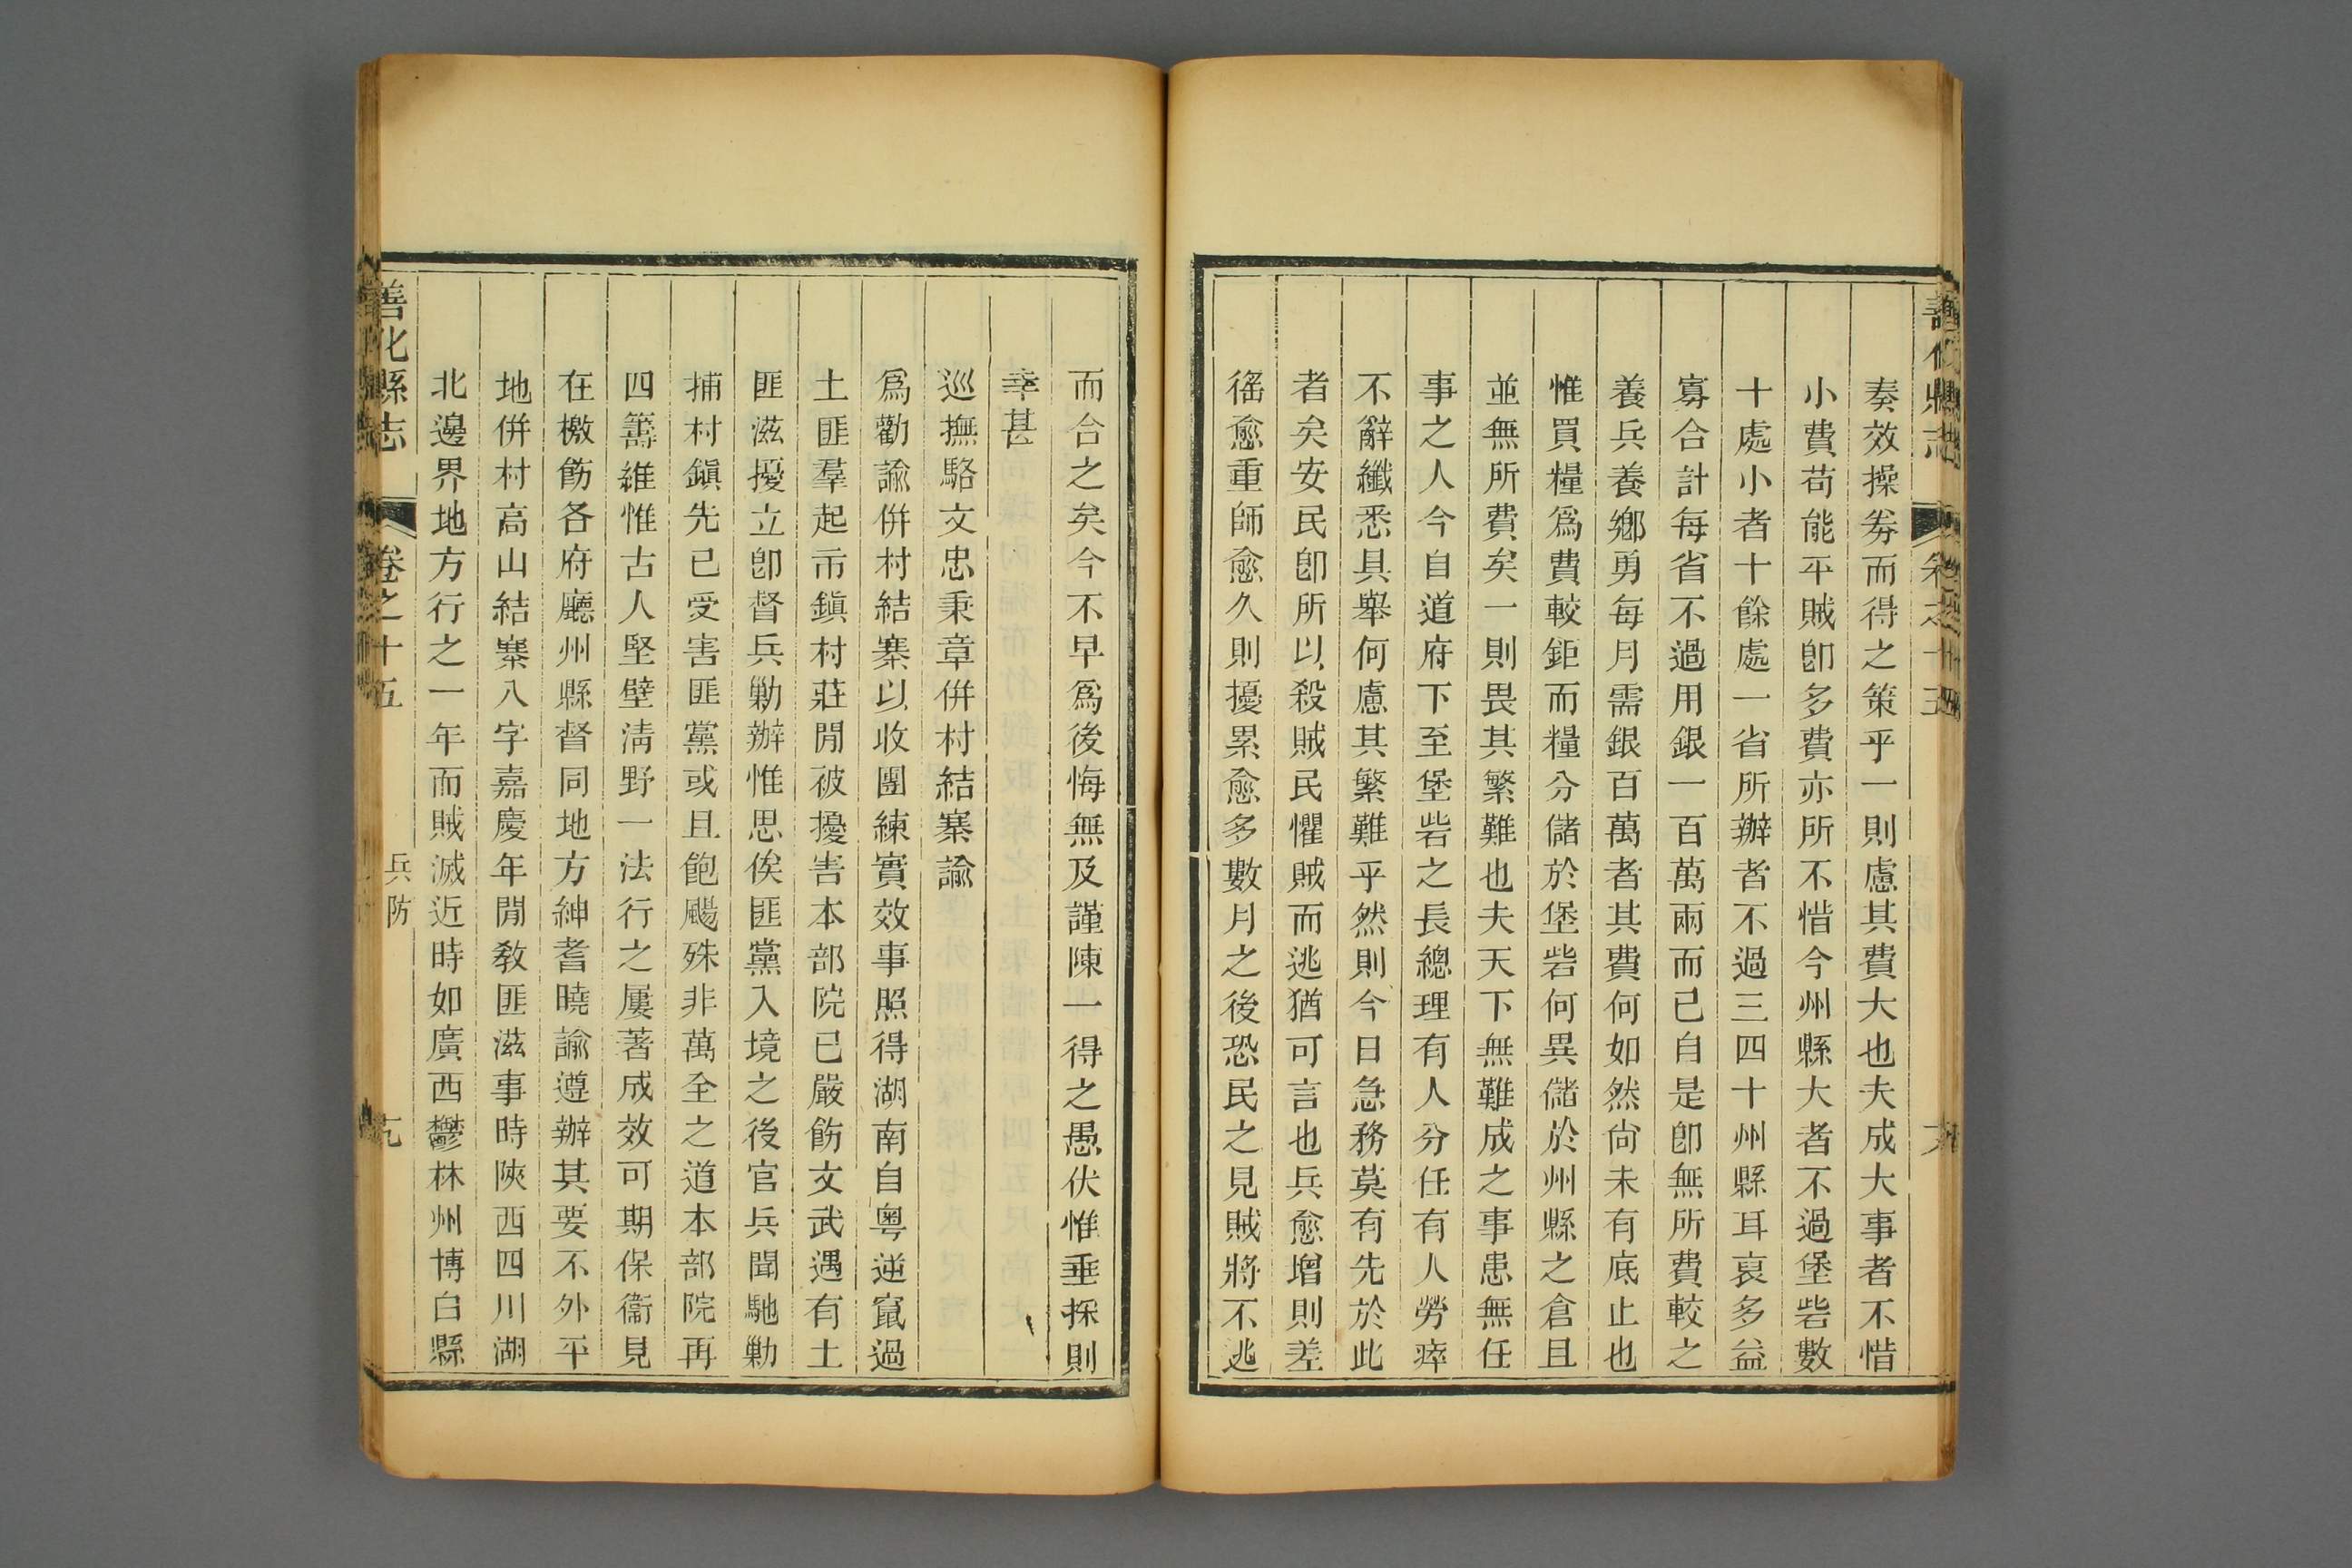 奏效操劵而得之策乎一則慮其費大也夫成大事者不惜
小費苟能平賊卽多費亦所不惜今州縣大者不過堡砦數
十處小者十餘處一省所辦者不過三四十州縣耳裒多益
寡合計每省不過用銀一百萬兩而已自是卽無所費較之
養兵養鄕勇每月需銀百萬者其費何如然尙未有底止也
惟買糧爲費較鉅而糧分儲於堡砦何異儲於州縣之倉且
並無所費矣一則畏其繁難也夫天下無難成之事患無任
事之人今自道府下至堡砦之長總理有人分任有人勞瘁
不辭纖悉具舉何慮其繁難乎然則今日急務莫有先於此
者矣安民卽所以殺賊民懼賊而逃猶可言也兵愈增則差
徭愈重師愈久則擾累愈多數月之後恐民之見賊將不逃
而合之矣今不早爲後悔無及謹陳一得之愚伏惟垂採則
幸甚
巡撫駱文忠秉章併村結寨諭
爲勸諭併村結寨以收團練實效事照得湖南自粵逆竄過
土匪羣起市鎭村莊閒被擾害本部院已嚴飭文武遇有土
匪滋擾立卽督兵勦辦惟思俟匪黨入境之後官兵聞馳勦
捕村鎭先已受害匪黨或且飽颺殊非萬全之道本部院再
四籌維惟古人堅壁淸野一法行之屢著成效可期保衞見
在檄飭各府廳州縣督同地方紳耆曉諭遵辦其要不外平
地併村高山結寨八字嘉慶年閒敎匪滋事時陝西四川湖
北邊界地方行之一年而賊滅近時如廣西鬱林州博白縣
善化縣志
卷之十五
兵防